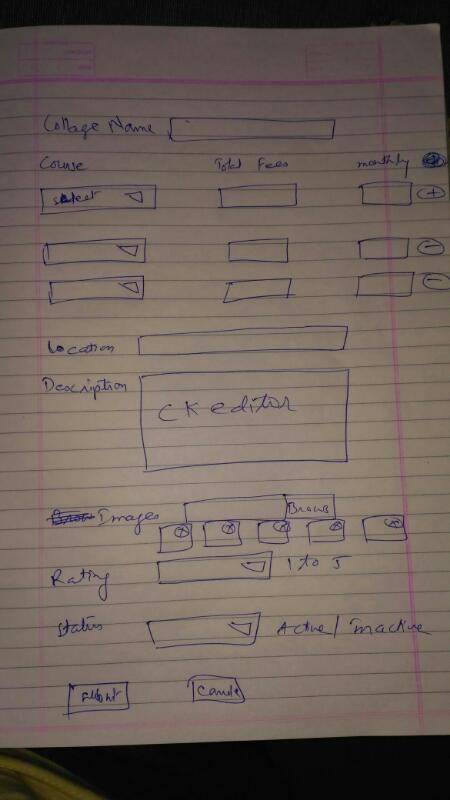 Collage Name
Course Total Fees monthly
select
Location
Description
CK editor
Images Brows
Rating 1 to 5
Status Active / Inactive